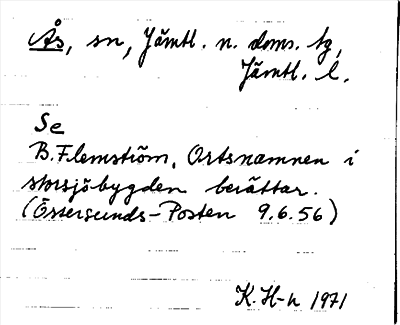 Ås, sn, Jämtl. n. doms. tg,
Jämtl. l.
Se
B. Flemström, Ortsnamnen i
storsjöbygden berättar.
(Östersunds-Posten 9.6.56)
K. H-n 1971